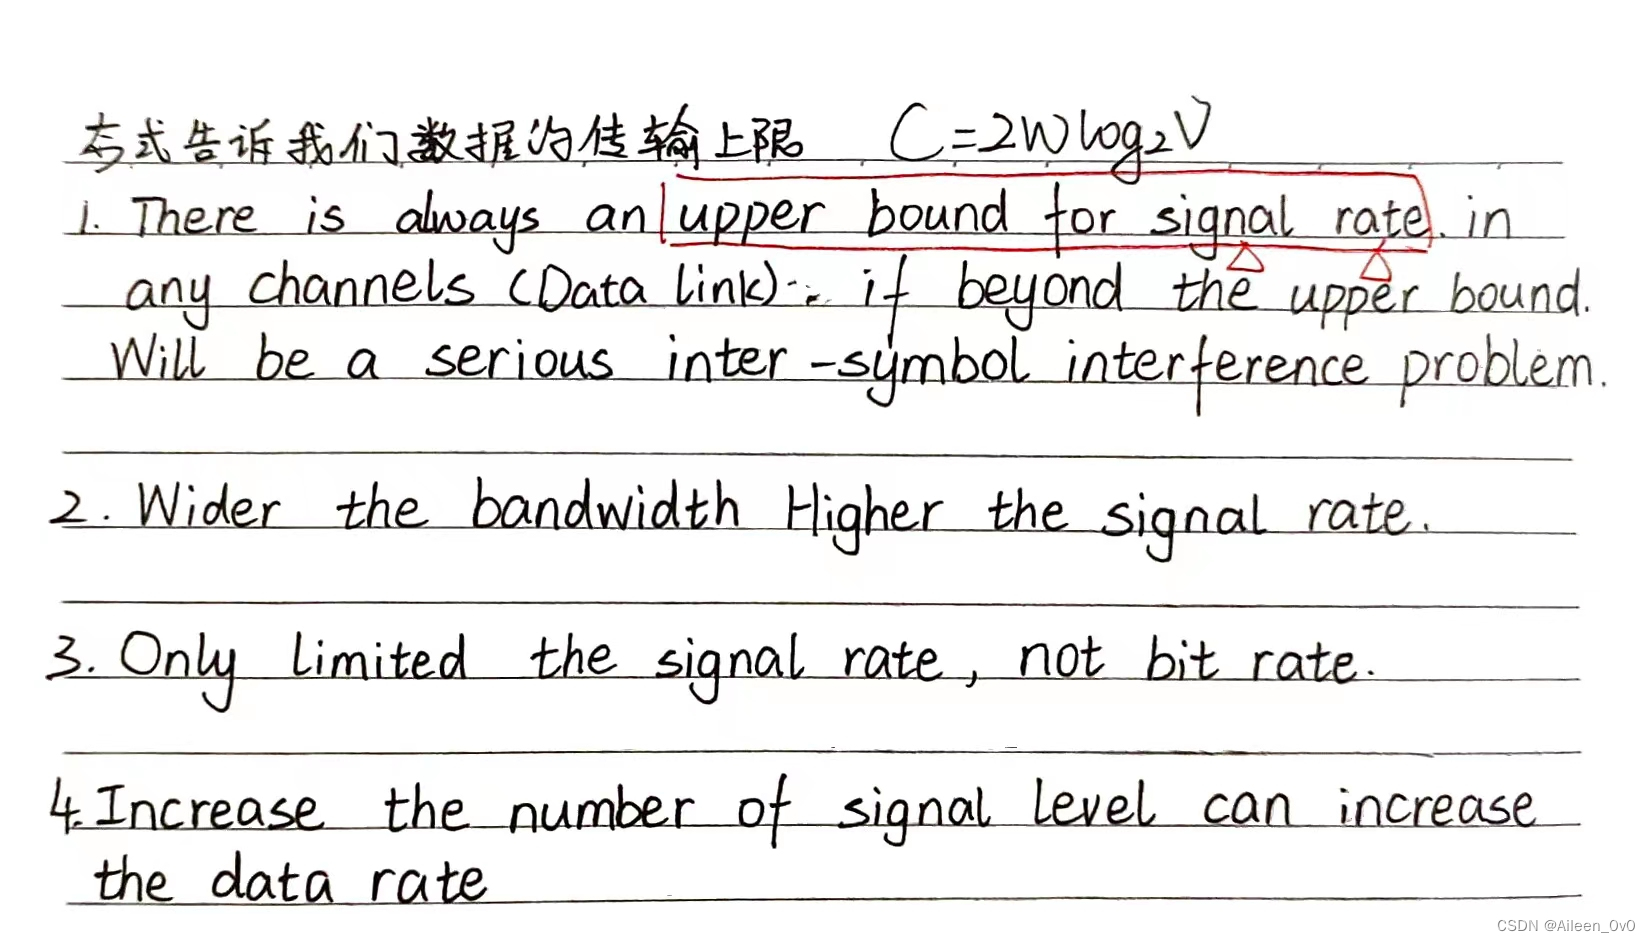 式告诉我们数据的传输上限 C=2Wlog₂V
1. There is always an upper bound for signal rate. in
any channels (Data link)... if beyond the upper bound.
Will be a serious inter-symbol interference problem.
2. Wider the bandwidth Higher the signal rate.
3. Only limited the signal rate, not bit rate.
4. Increase the number of signal level can increase
the data rate
CSDN @Aileen_0v0